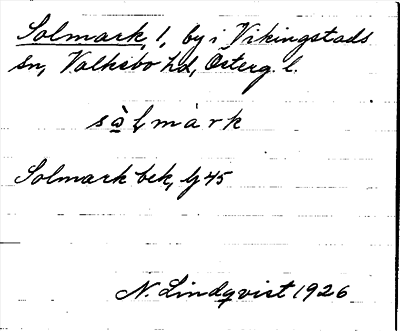 Solmark, 1, by i Vikingstads
sn, Valkebo hd, Österg. l.
sòlmàrk
Solmark bek, lj 45
N. Lindqvist 1926